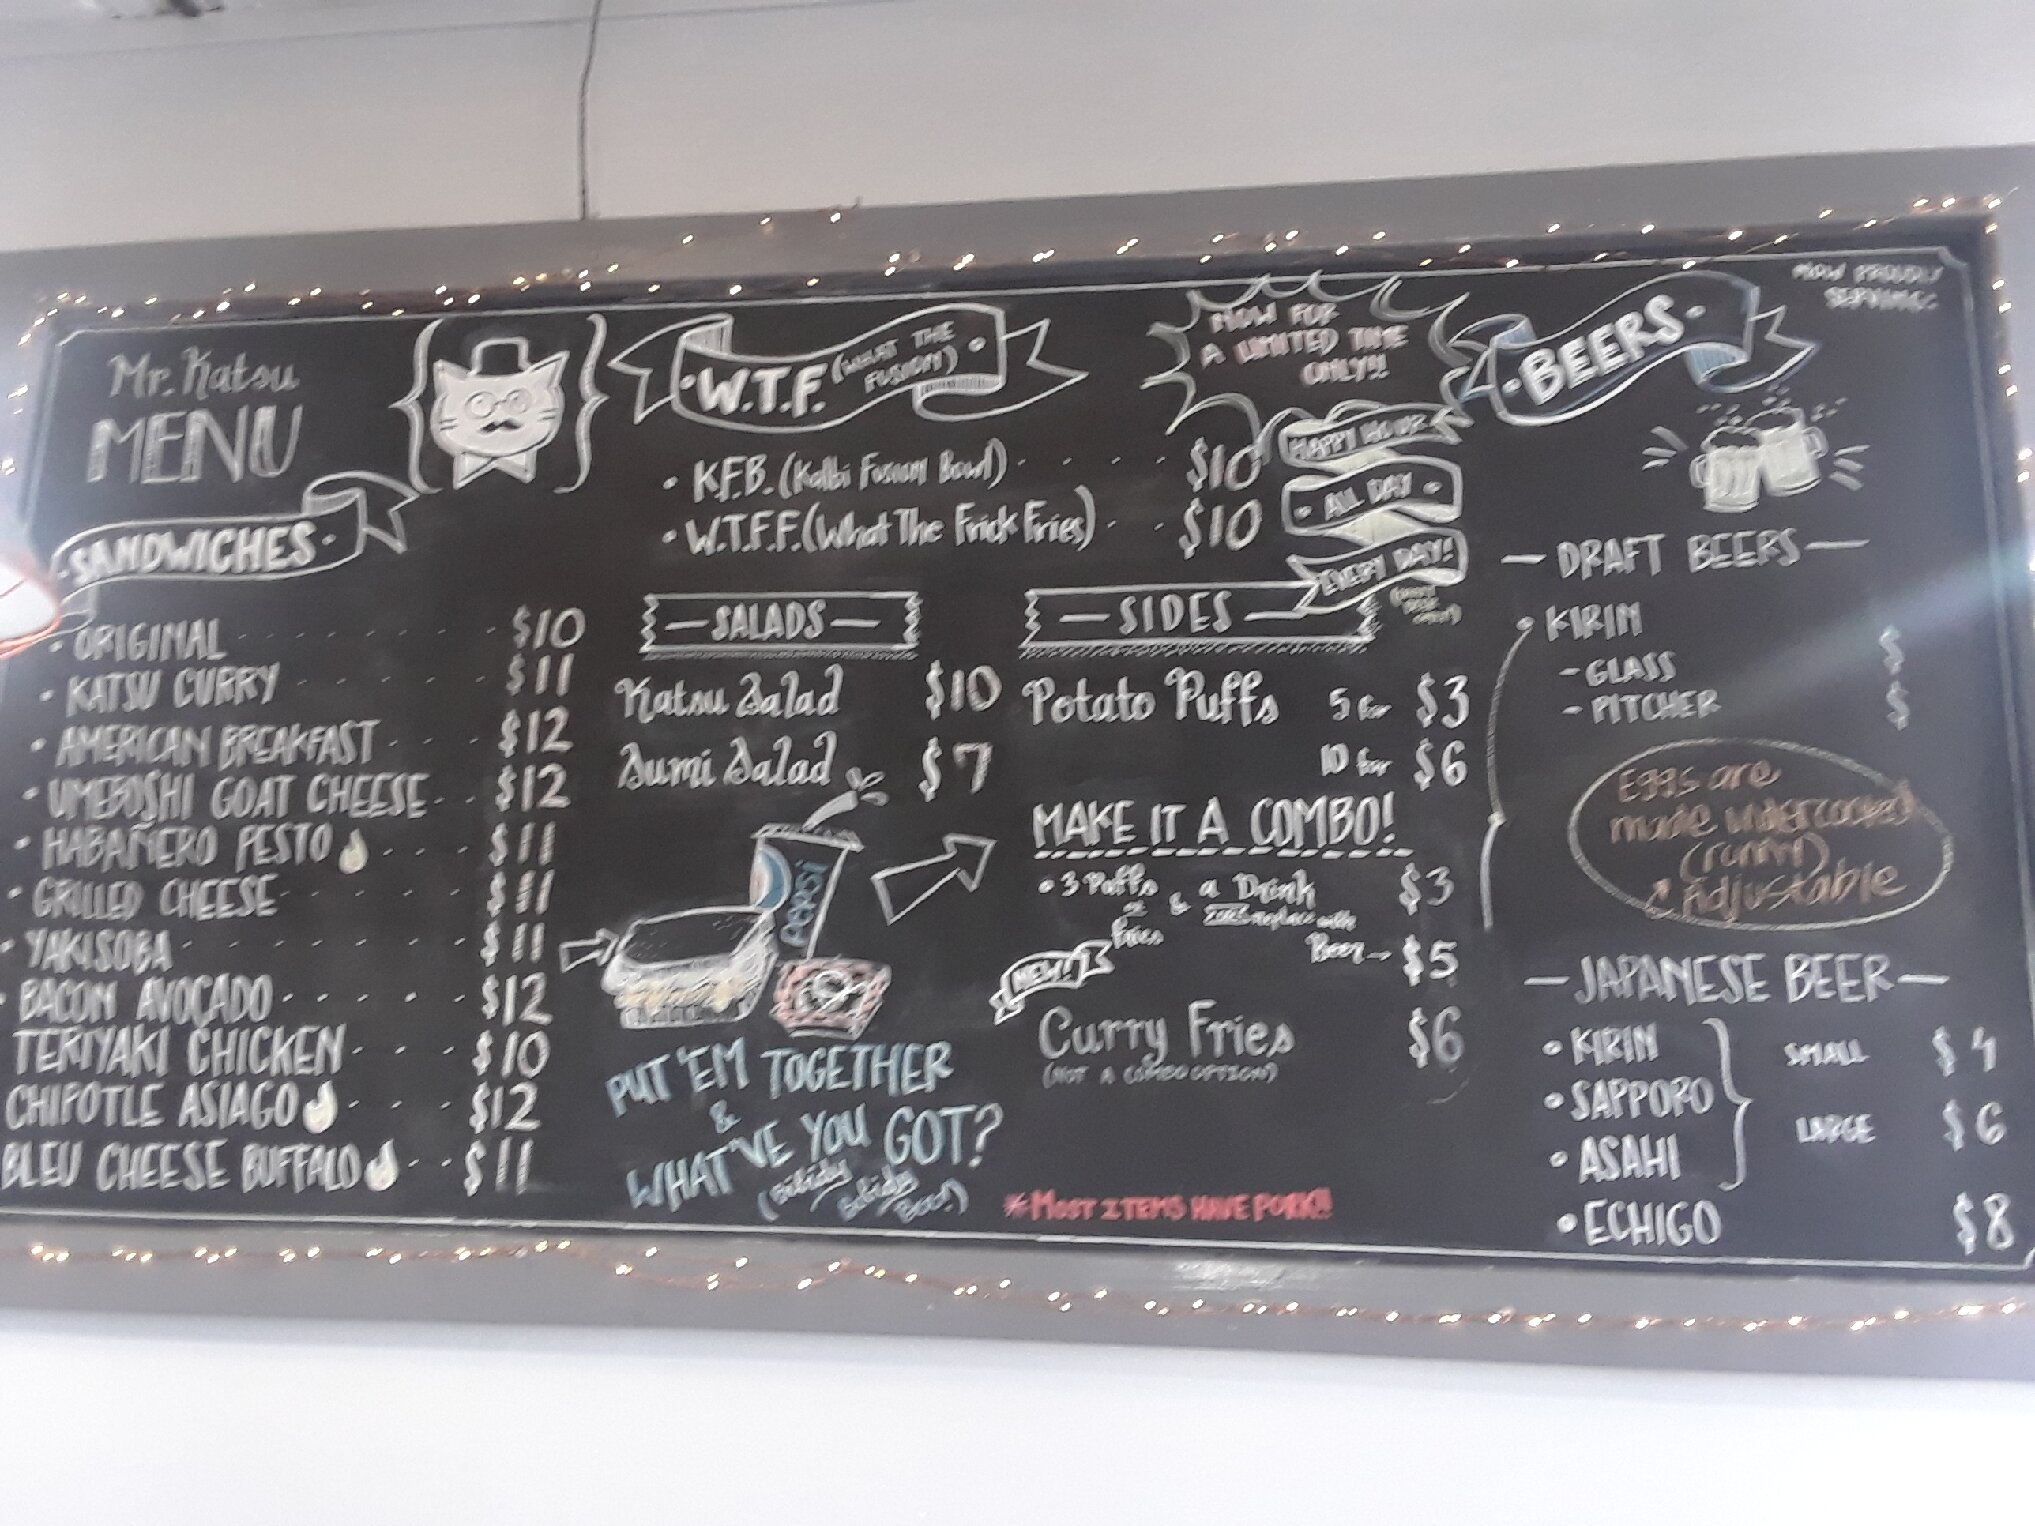 Mr. Katsu
MENU
SANDWICHES
• ORIGINAL $10
• KATSU CURRY $11
• AMERICAN BREAKFAST $12
• UMEBOSHI GOAT CHEESE $12
• HABAÑERO PESTO $11
• GRILLED CHEESE $11
• YAKISOBA $11
• BACON AVOCADO $12
TERIYAKI CHICKEN $10
CHIPOTLE ASIAGO $12
BLEU CHEESE BUFFALO $11
• W.T.F. (WHAT THE FUSION) •
• K.F.B. (Kalbi Fusion Bowl) $10
• W.T.F.F. (What The Frick Fries) $10
— SALADS —
Katsu Salad $10
Sumi Salad $7
PEPSI
PUT 'EM TOGETHER
&
WHAT'VE YOU GOT?
(Bibidy
Bobidy
Boo!)
NOW FOR
A LIMITED TIME
ONLY!!
HAPPY HOUR
ALL DAY
EVERY DAY!
— SIDES —
Potato Puffs 5 for $3
10 for $6
MAKE IT A COMBO!
• 3 Puffs & a Drink $3
or
Fries
replace with
Beer $5
NEW!
Curry Fries $6
(NOT A COMBO OPTION)
*MOST ITEMS HAVE PORK!!
NOW PROUDLY
SERVING:
• BEERS •
— DRAFT BEERS —
• KIRIN
- GLASS $
- PITCHER $
Eggs are
made undercooked
(runny)
Adjustable
— JAPANESE BEER —
• KIRIN SMALL $4
• SAPPORO
LARGE $6
• ASAHI
• ECHIGO $8